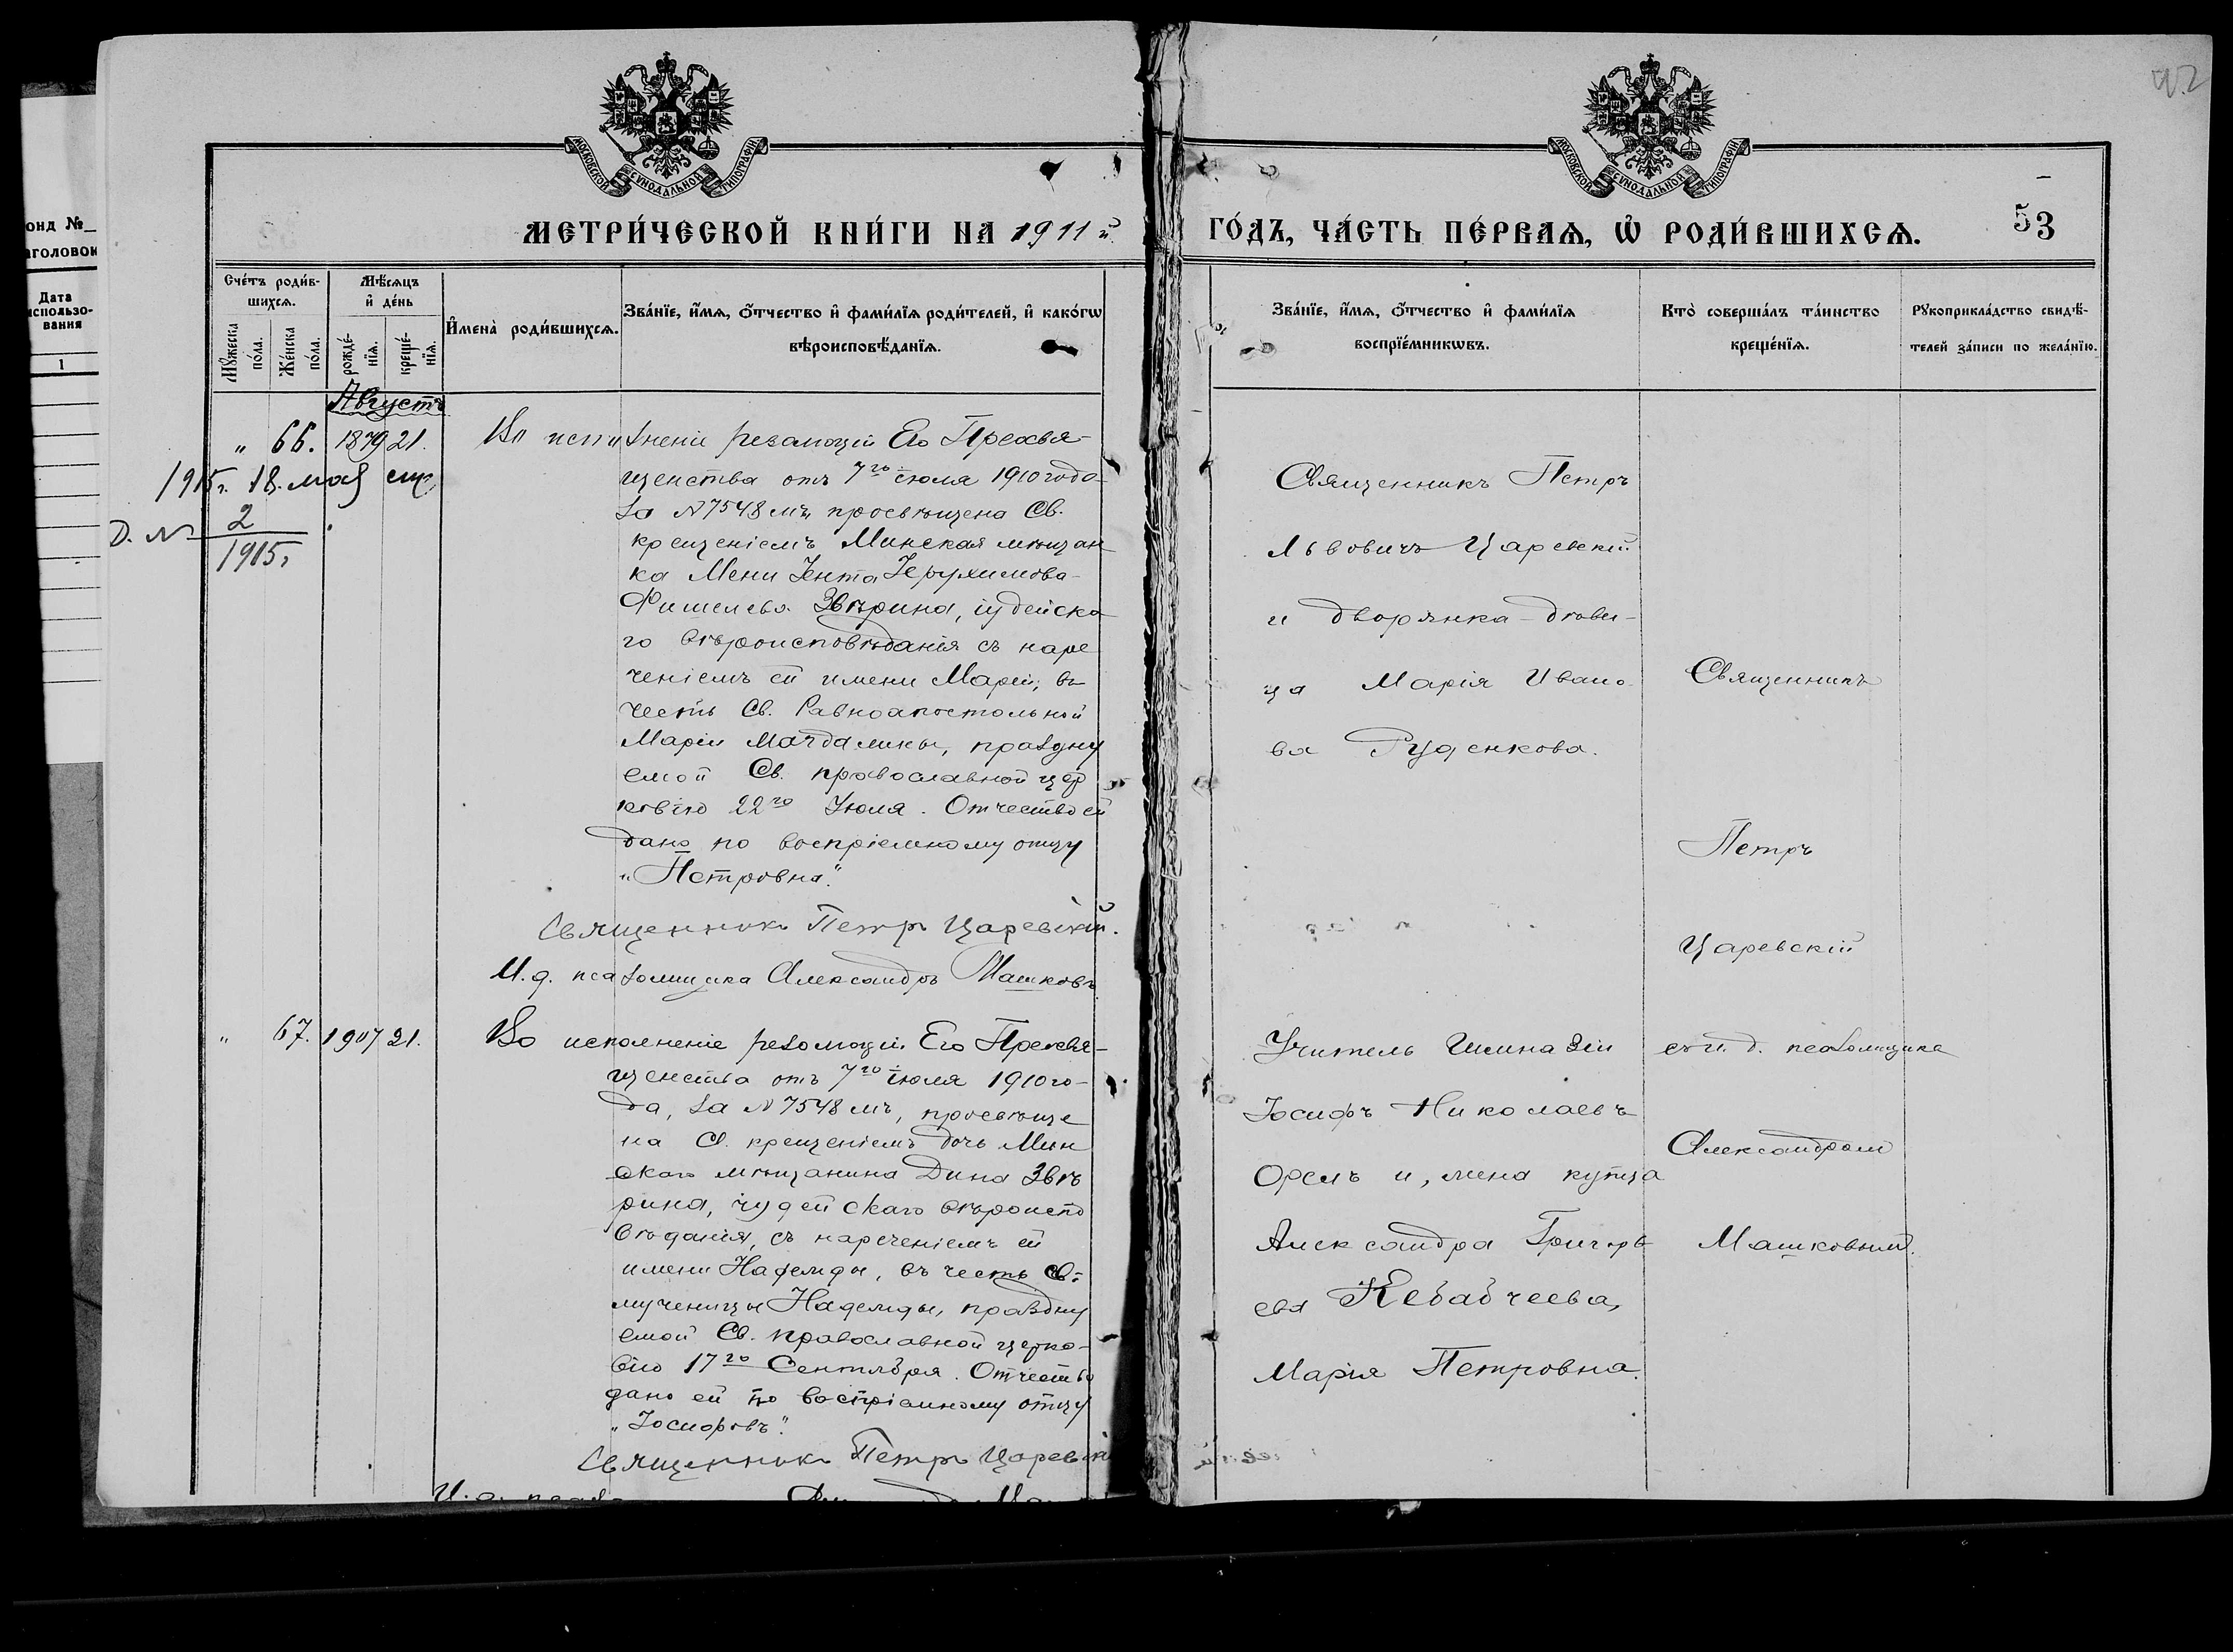 42
МОСКОВСКОЙ СѴНОДАЛЬНОЙ ТИПОГРАФІИ
МОСКОВСКОЙ СѴНОДАЛЬНОЙ ТИПОГРАФІИ
МЕТРИ́ЧЕСКОЙ КНИ́ГИ НА 1911й ГО́ДЪ, ЧА́СТЬ ПЕ́РВАѦ, Ѡ҆ РОДИ́ВШИХСѦ.
53
онд №
аголовок
Дата
использо-
вания
1
Сче́тъ роди́в-
шихсѧ.
Мꙋ́жеска
по́ла.
Же́нска
по́ла.
Мѣ́сѧцъ
и҆ де́нь
рожде́-
нїѧ.
креще́-
нїѧ.
И҆мена̀ роди́вшихсѧ.
Зва́нїе, и҆́мѧ, ѻ҆́тчество и҆ фами́лїѧ роди́телей, и҆ како́гѡ
вѣроисповѣ́данїѧ.
Зва́нїе, и҆́мѧ, ѻ҆́тчество и҆ фами́лїѧ
воспрїе́мникѡвъ.
Кто̀ соверша́лъ та́инство
креще́нїѧ.
Рꙋкоприкла́дство свидѣ́-
телей за́писи по жела́нїю.
Августъ
" 66. 1879 21.
1915 г. 18. мая
Д. № 2
1915 г
Во исполненіе резолюціи Его Преосвя-
щенства отъ 7го іюля 1910 года
за № 7548 мъ, просвѣщена Св.
крещеніемъ Минская мѣщан
ка Мени Іента Іерухимова-
Фишелева Звѣрина, іудейска
го вѣроисповѣданія съ наре
ченіемъ ей имени Маріи, въ
честь Св. Равноапостольной
Маріи Магдалины, праздну
емой Св. православной цер
ковію 22го Іюля. Отчество ей
дано по воспріемному отцу
"Петровна".
Священникъ Петръ Царевскій.
И. д. псаломщика Александръ Машковъ.
Священникъ Петръ
Львовичъ Царевскій
и дворянка-дѣви-
ца Марія Ивано-
ва Руденкова.
Священникъ
Петръ
Царевскій
" 67. 1907 21.
Во исполненіе резолюціи Его Преосвя-
щенства отъ 7го іюля 1910 го-
да, за № 7548 мъ, просвѣще
на С. крещеніемъ дочь Мин
скаго мѣщанина Дина Звѣ
рина, іудейскаго вѣроиспо
вѣданія, съ нареченіемъ ей
имени Надежды, въ честь Св.
мученицы Надежды, праздну
емой Св. православной церко-
вію 17го Сентября. Отчество
дано ей по воспріемному отцу
"Іосифовъ".
Священникъ Петръ Царевскій
И. д.
Учитель Гимназіи
Іосифъ Николаевъ
Орелъ и, жена купца
Александра Григорь
ева Кебабчеева,
Марія Петровна.
съ и. д. псаломщика
Александромъ
Машковымъ.